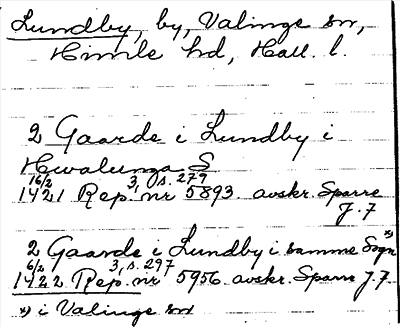 Lundby, by, Valinge sn,
Himle hd, Hall. l.
2 Gaarde i Lundby i
Hwalunga S
16/2 3, s. 279
1421 Rep. nr 5893. avskr. Sparre
J. 7
2 Gaarde i Lundby i samme Sogn x)
6/2 3, s. 297
1422 Rep. nr 5956. avskr. Sparre J. 7
x) i Valinge sn